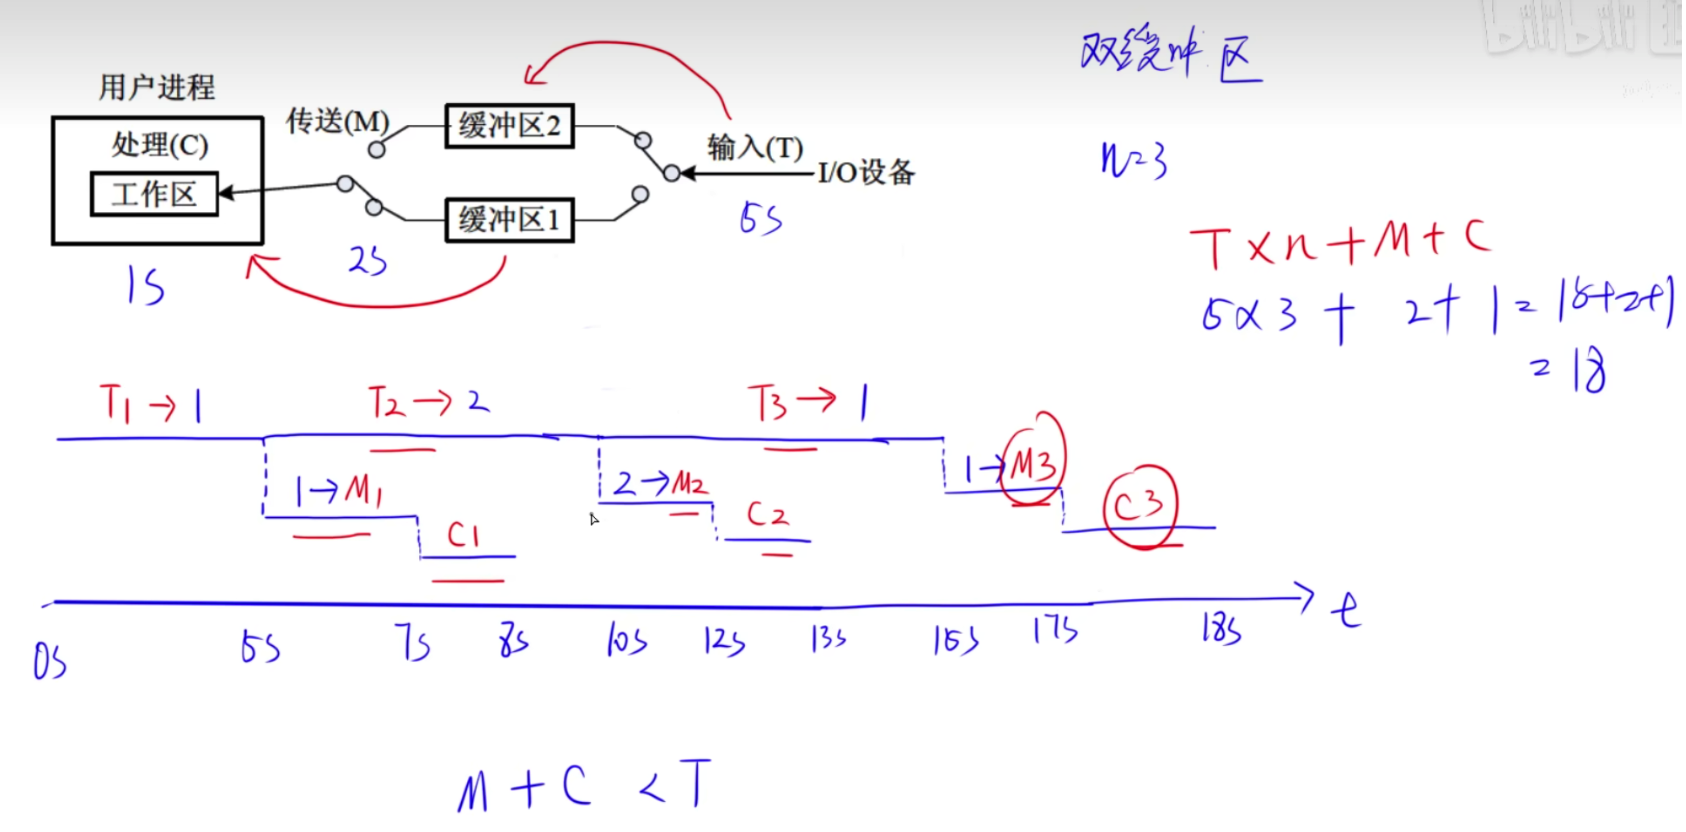 bilibili
双缓冲区
用户进程
处理(C)
工作区
传送(M)
缓冲区2
缓冲区1
输入(T)
I/O设备
1S
2S
5S
n=3
T×n+M+C
5×3+2+1=15+2+1
=18
T1→1
T2→2
T3→1
1→M1
C1
2→M2
C2
1→M3
C3
0S
5S
7S
8S
10S
12S
13S
15S
17S
18S
t
M+C<T